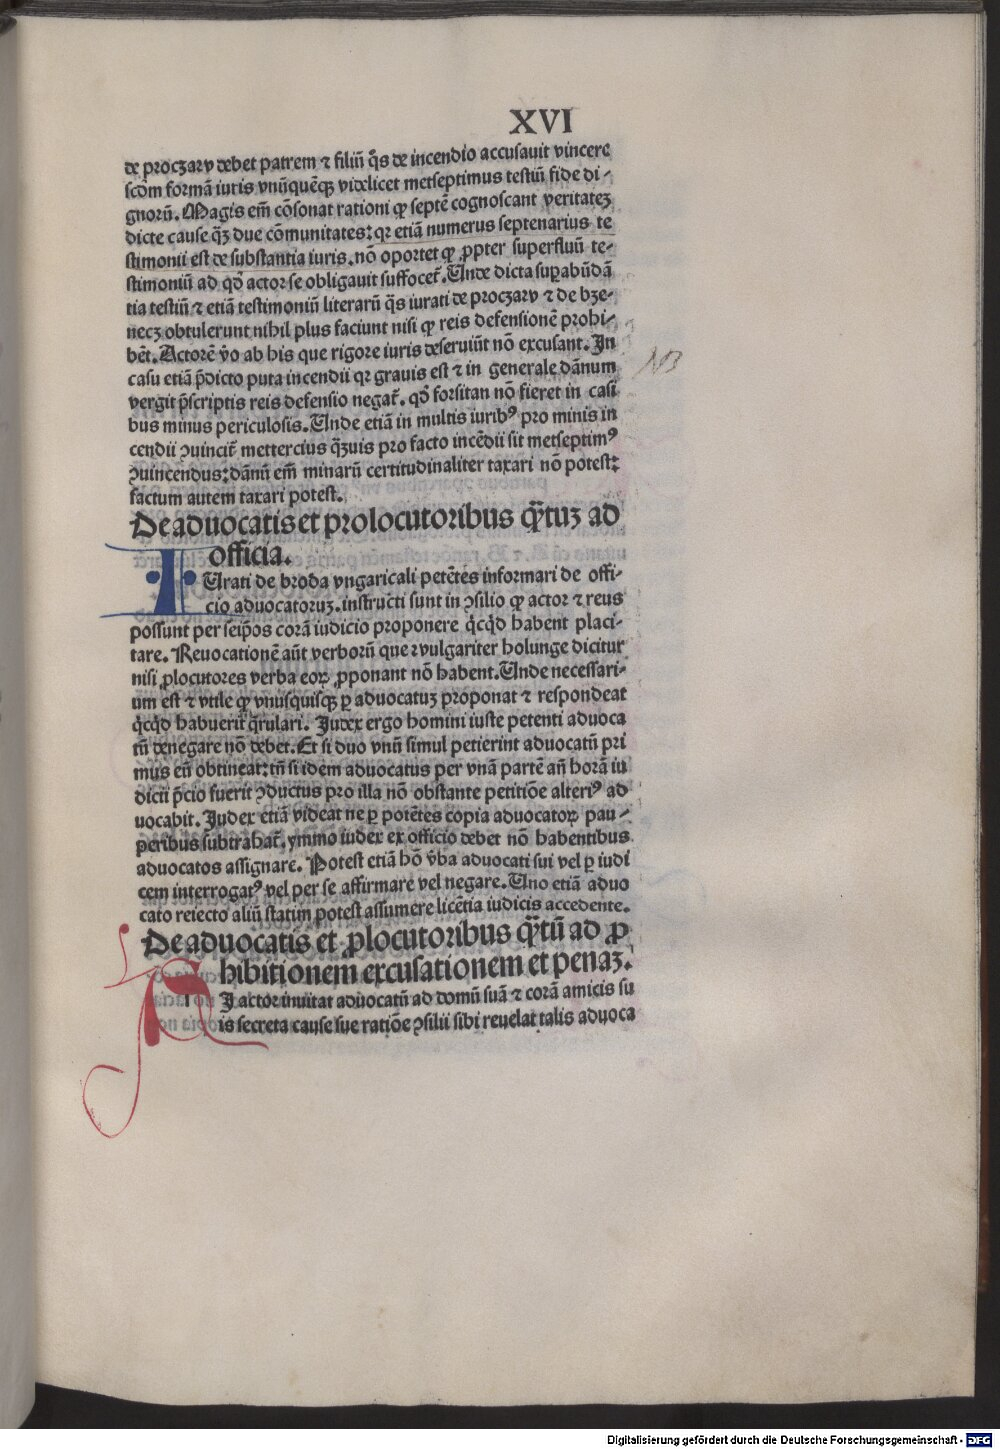 XVI
de proczarv debet patrem ⁊ filiū q̄s de incendio accusauit vincere
scd̄m formā iuris vnūquēqꝫ videlicet metseptimus testiū fide di⸗
gnorū. Magis em̄ cōsonat rationi ꝙ septē cognoscant veritateꝫ
dicte cause q̄ꝫ due cōmunitates: qꝛ etiā numerus septenarius te
stimonii est de substantia iuris. nō oportet ꝙ ꝓpter superfluū te⸗
stimoniū ad qd̄ actor se obligauit suffocet̄. Unde dicta suꝑabūdā
tia testiū ⁊ etiā testimoniū literarū q̄s iurati de proczarv ⁊ de bze⸗
necz obtulerunt nihil plus faciunt nisi ꝙ reis defensionē prohi⸗
bēt. Actorē v̄o ab his que rigore iuris deseruiūt nō excusant. In
casu etiā p̄dicto puta incendii qꝛ grauis est ⁊ in generale dānum
vergit p̄scriptis reis defensio negat̄. qd̄ forsitan nō fieret in casi
bus minus periculosis. Unde etiā in multis iuribꝰ pro minis in
cendii ꝯuincit̄ mettercius q̄ꝫuis pro facto incēdii sit metseptimꝰ
ꝯuincendus: dānū em̄ minarū certitudinaliter taxari nō potest:
factum autem taxari potest.
NB
De aduocatis et prolocutoribus qͣꝫtuꝫ ad
officia.
I Urati de broda vngaricali petētes informari de offi⸗
cio aduocatoruꝫ. instructi sunt in ꝯsilio ꝙ actor ⁊ reus
possunt per seip̄os corā iudicio proponere q̇cq̇d habent placi⸗
tare. Reuocationē aūt verborū que ꝛvulgariter holunge dicitur
nisi ꝓlocutores verba eoꝝ ꝓponant nō habent. Unde necessari⸗
um est ⁊ vtile ꝙ vnusquisqꝫ ꝑ aduocatuꝫ proponat ⁊ respondeat
q̇cq̇d habuerit q̄rulari. Judex ergo homini iuste petenti aduoca
tū denegare nō debet. Et si duo vnū simul petierint aduocatū pri
mus eū obtineat: tn̄ si idem aduocatus per vnā partē an̄ horā iu
dicii p̄cio fuerit ꝯductus pro illa nō obstante petitiōe alteriꝰ ad
uocabit. Judex etiā videat ne ꝑ potētes copia aduocatoꝝ pau⸗
peribus subtrahat̄. ymmo iudex ex officio debet nō habentibus
aduocatos assignare. Potest etiā hō v̄ba aduocati sui vel ꝑ iudi
cem interrogatꝰ vel per se affirmare vel negare. Uno etiā aduo
cato reiecto aliū statim potest assumere licētia iudicis accedente.
De aduocatis et ꝓlocutoribus qͣꝫtū ad ꝓ
hibitionem excusationem et penaꝫ.
S I actor inuitat aduocatū ad domū suā ⁊ corā amicis su
is secreta cause sue ratiōe ꝯsilii sibi reuelat talis aduoca
Digitalisierung gefördert durch die Deutsche Forschungsgemeinschaft - DFG